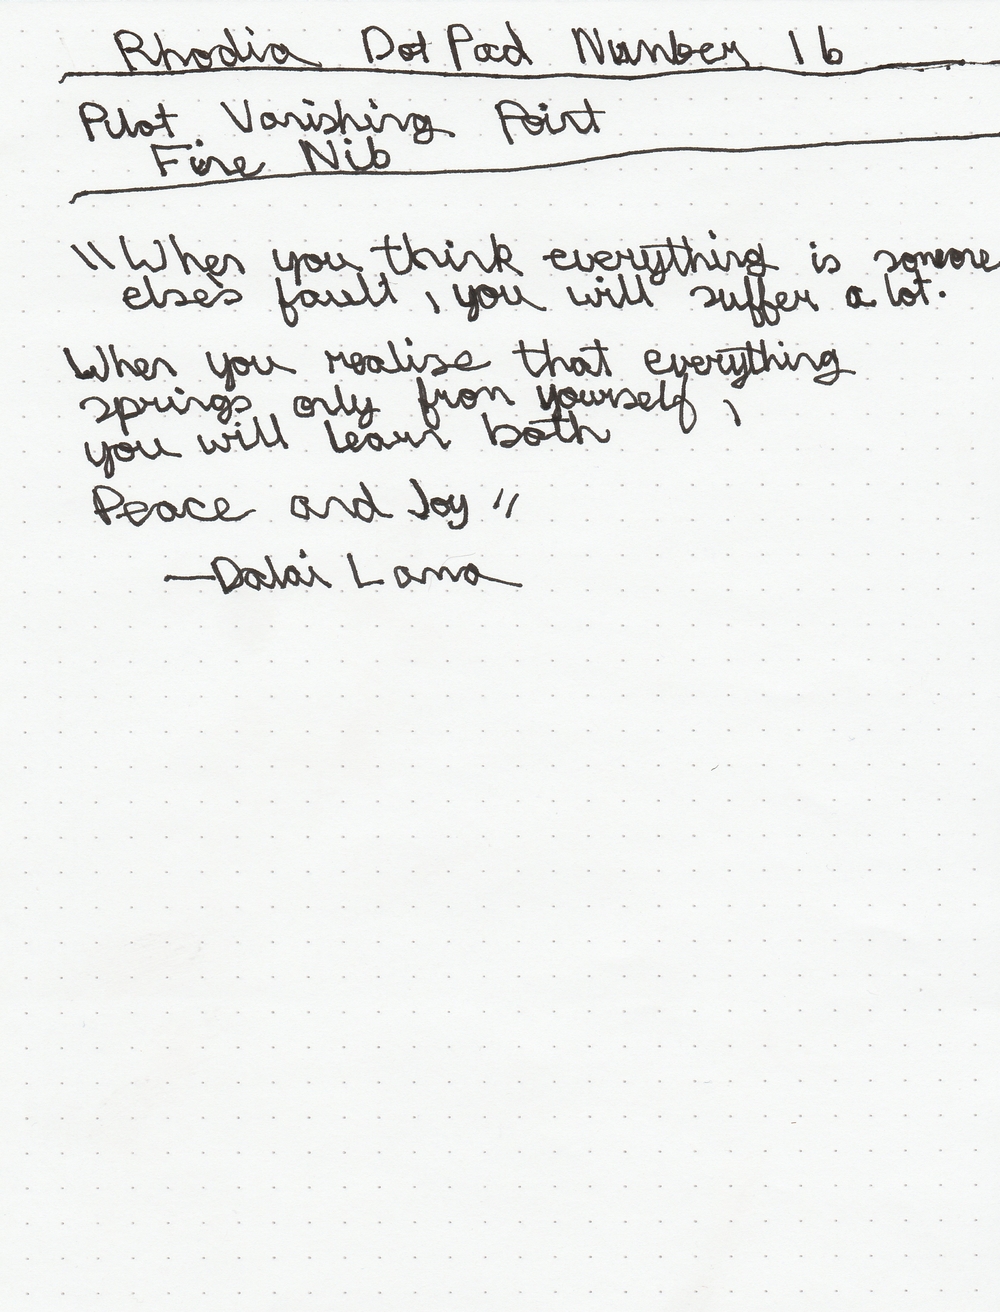 Rhodia Dot Pad Number 16
Pilot Vanishing Point
Fine Nib
"When you think everything is someone
else's fault, you will suffer a lot.
When you realise that everything
springs only from yourself,
you will learn both
Peace and Joy"
—Dalai Lama